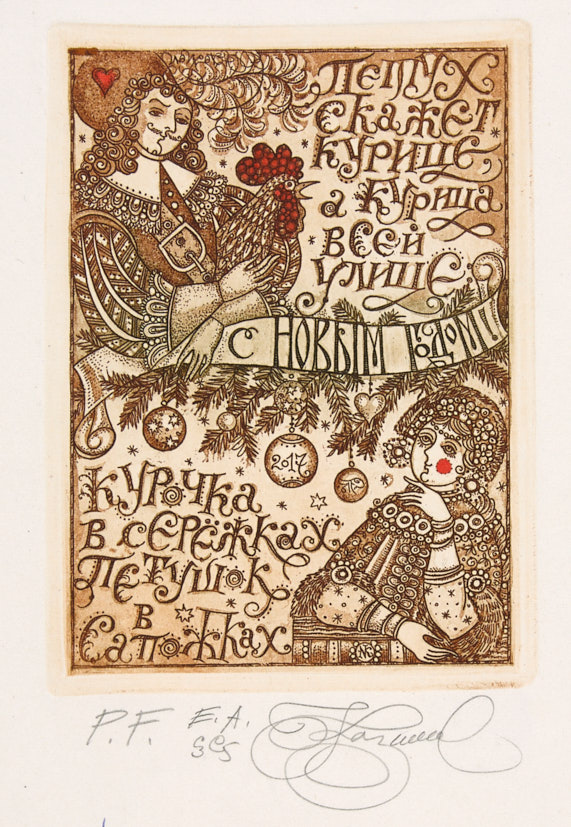 Петух
скажет
курице,
а курица
всей
улице
С НОВЫМ ГОДОМ!
2017
Курочка
в серёжках
Петушок
в
Сапожках
P.F. E.A.